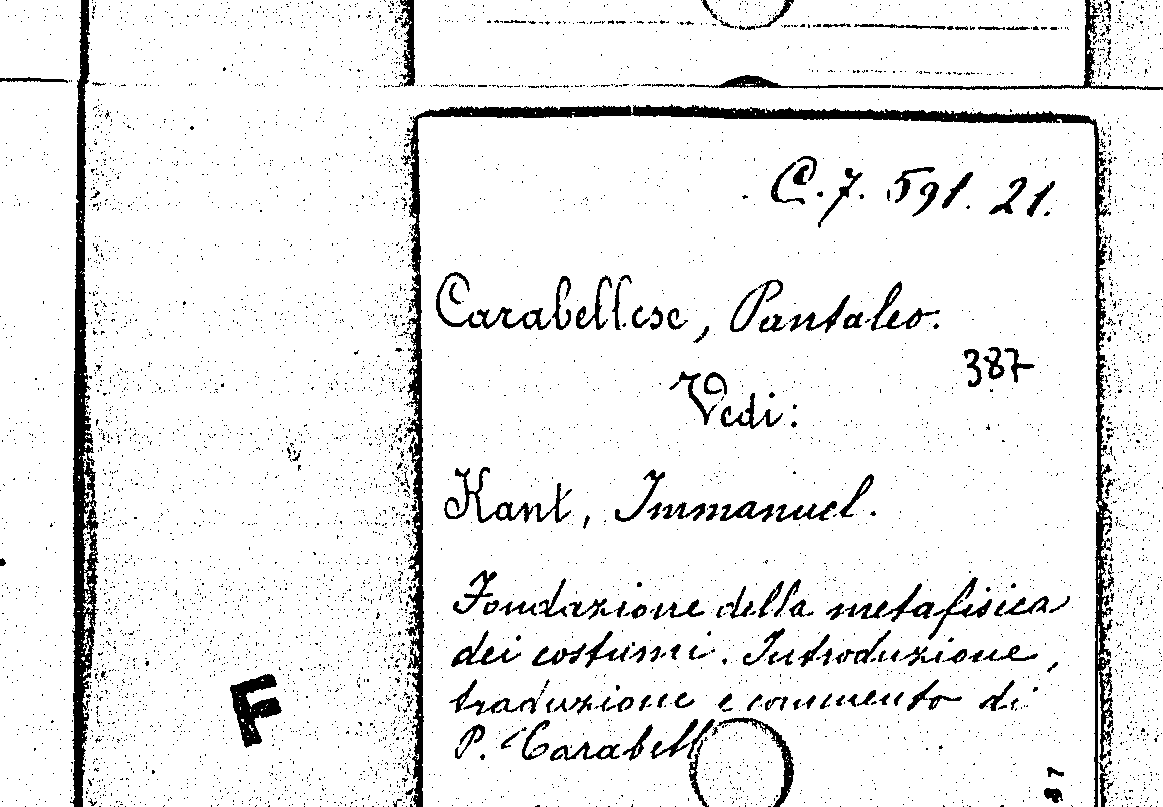 C. 7. 591. 21.
Carabellese, Pantaleo.
387
Vedi:
Kant, Immanuel.
Fondazione della metafisica
dei costumi. Introduzione,
traduzione e commento di
P. Carabell
F
87